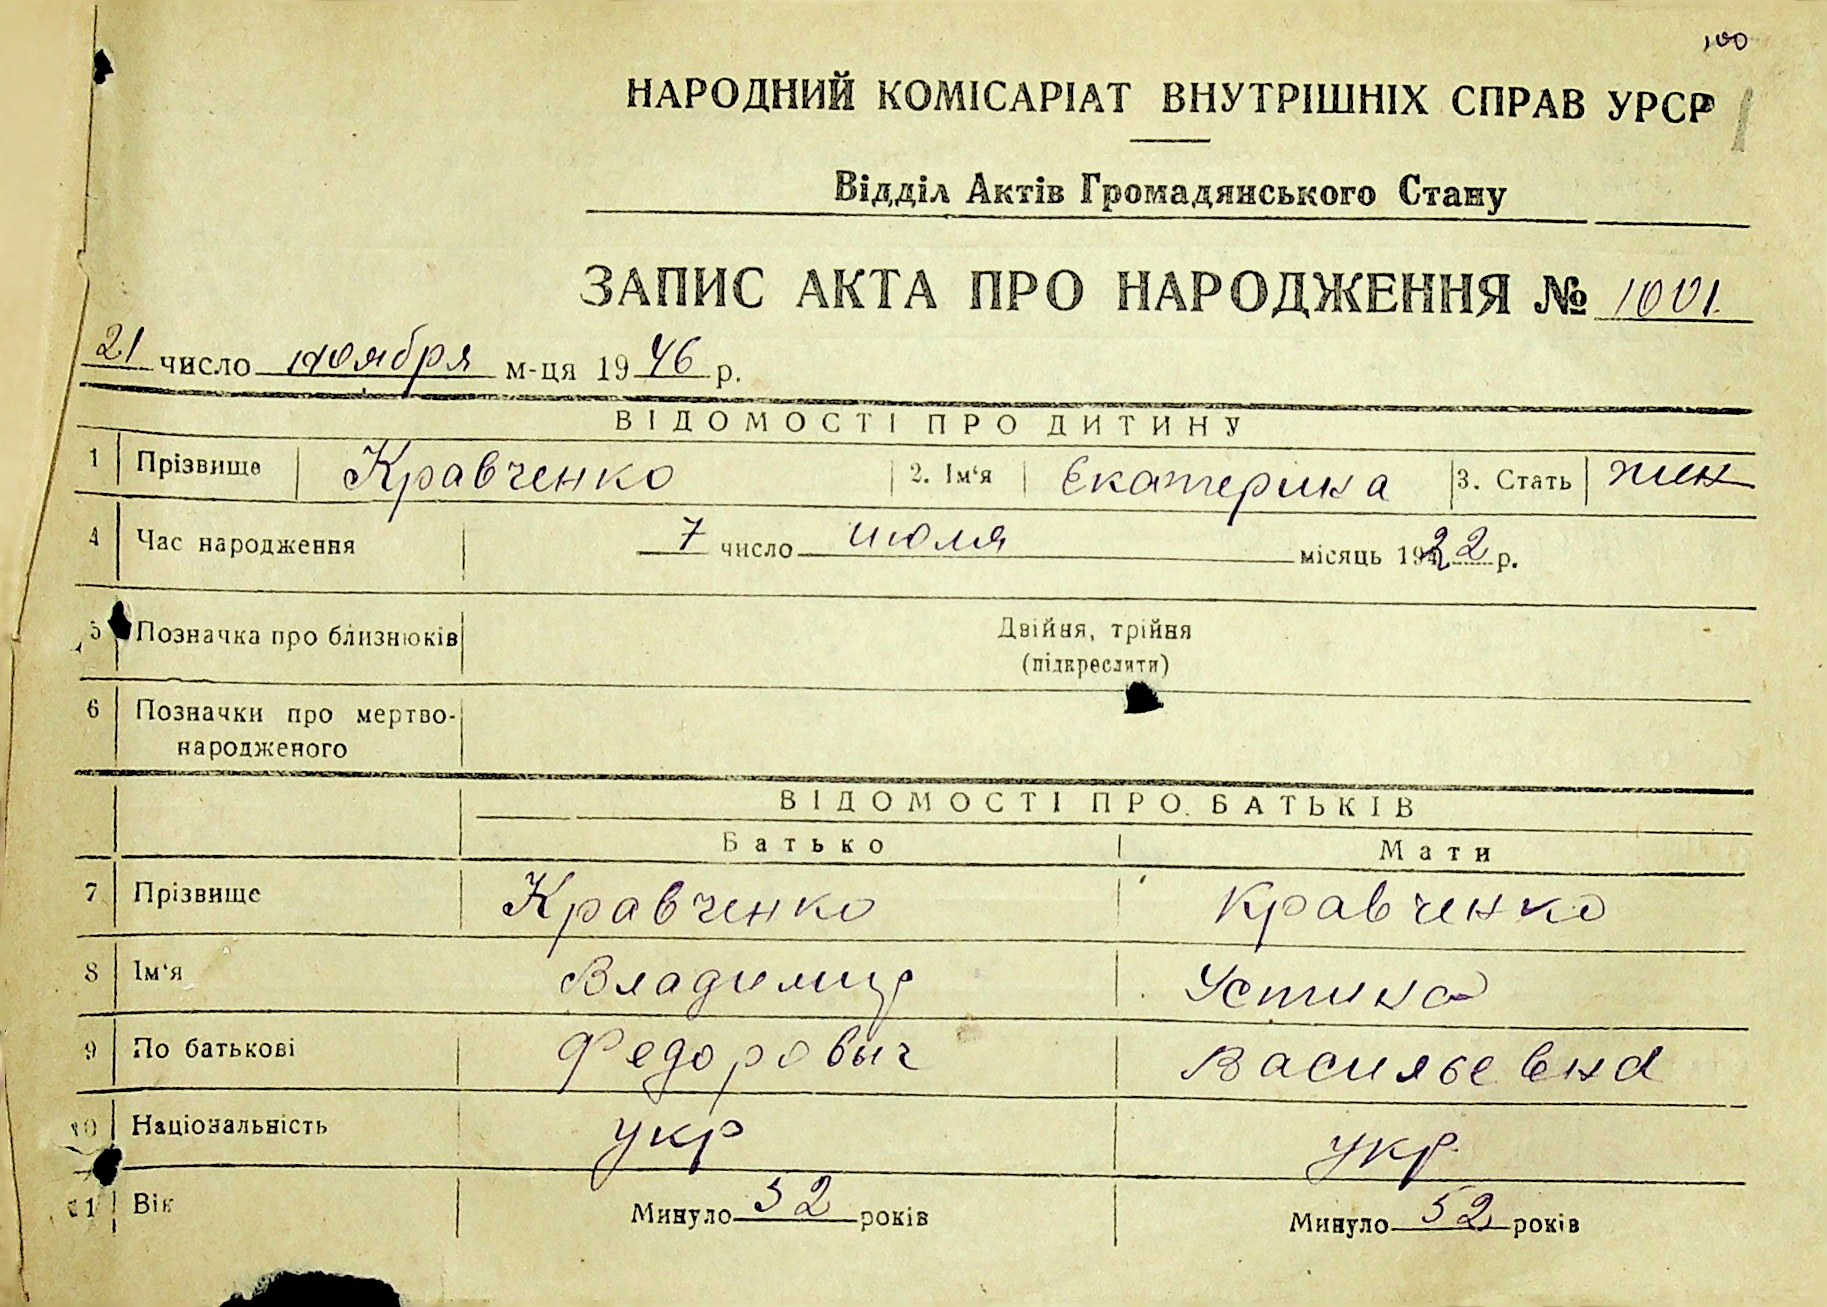 100
НАРОДНИЙ КОМІСАРІАТ ВНУТРІШНІХ СПРАВ УРСР
Відділ Актів Громадянського Стану
ЗАПИС АКТА ПРО НАРОДЖЕННЯ № 1001.
21 число ноября м-ця 1946 р.
ВІДОМОСТІ ПРО ДИТИНУ
1 Прізвище Кравченко 2. Ім‘я Екатерина 3. Стать жен
4 Час народження 7 число июля місяць 1922 р.
5 Позначка про близнюків Двійня, трійня
(підкреслити)
6 Позначки про мертво-
народженого
ВІДОМОСТІ ПРО БАТЬКІВ
Батько Мати
7 Прізвище Кравченко Кравченко
8 Ім‘я Владимир Устина
9 По батькові Федоровыч Васильевна
10 Національність укр укр.
11 Вік Минуло 52 років Минуло 52 років